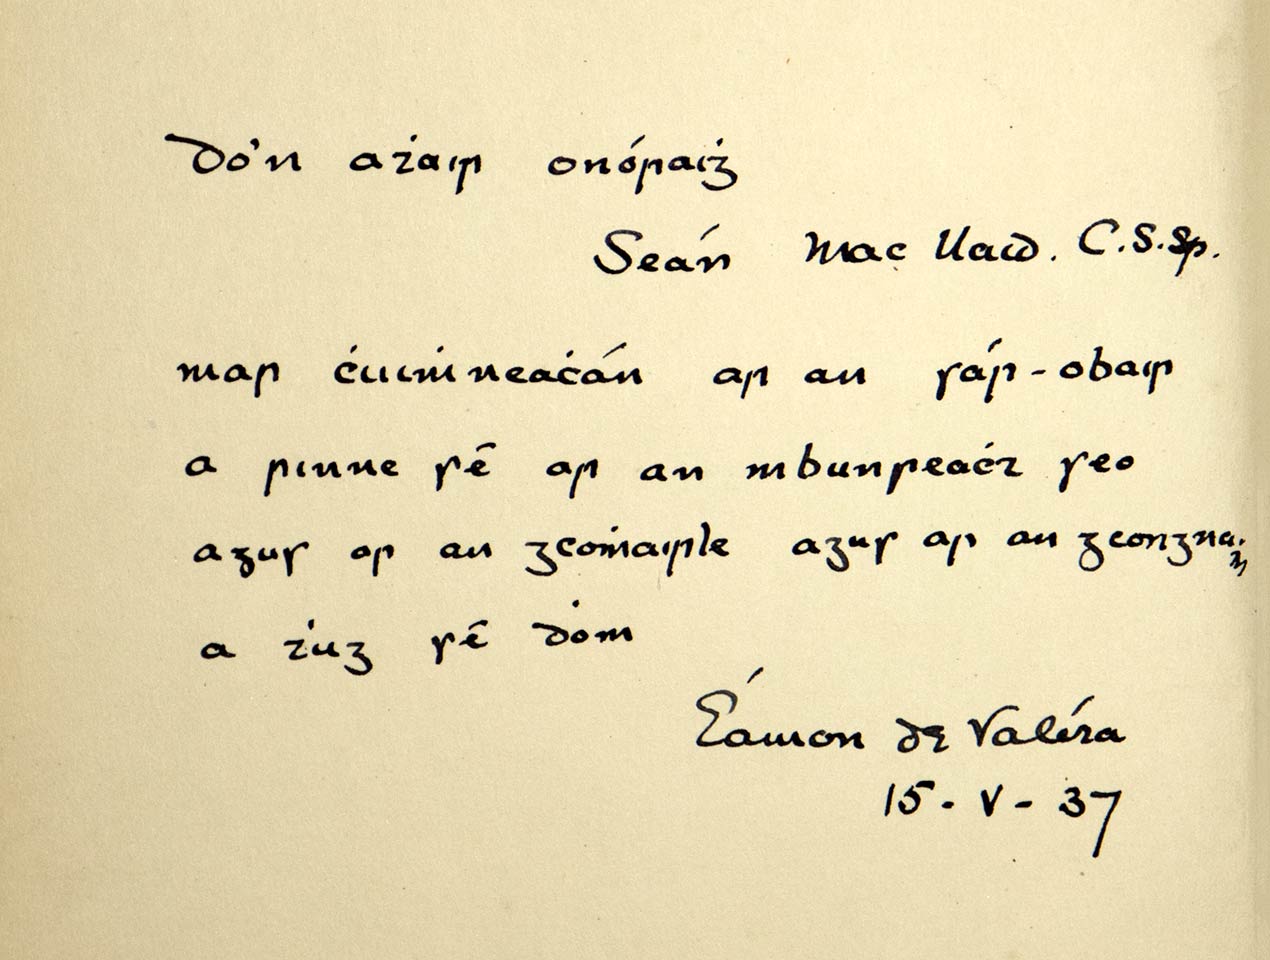 Do'n aṫair onóraiġ
Seán Mac Uaid. C.S.Sp.
mar ċuiṁneaċán ar an sár-obair
a rinne sé ar an mbunreaċt seo
agus ar an gcoṁairle agus ar an gcongnaṁ
a ṫug sé ḋom
Éamon de Valéra
15-V-37